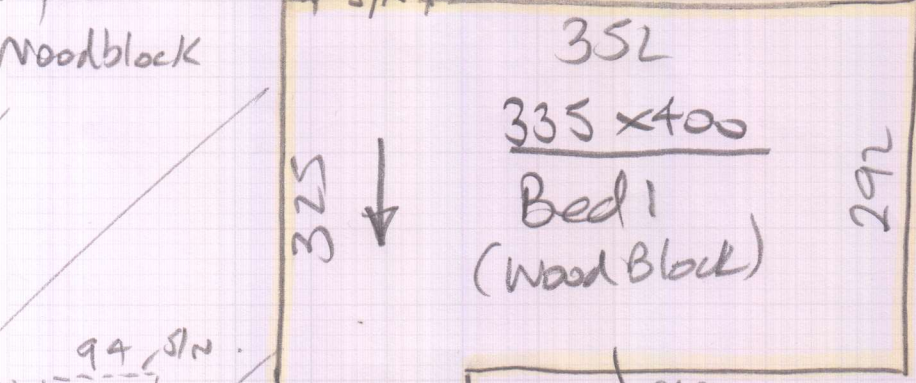 Woodblock
352
335 x 400
Bed 1
(Wood Block)
325
292
94 S/N